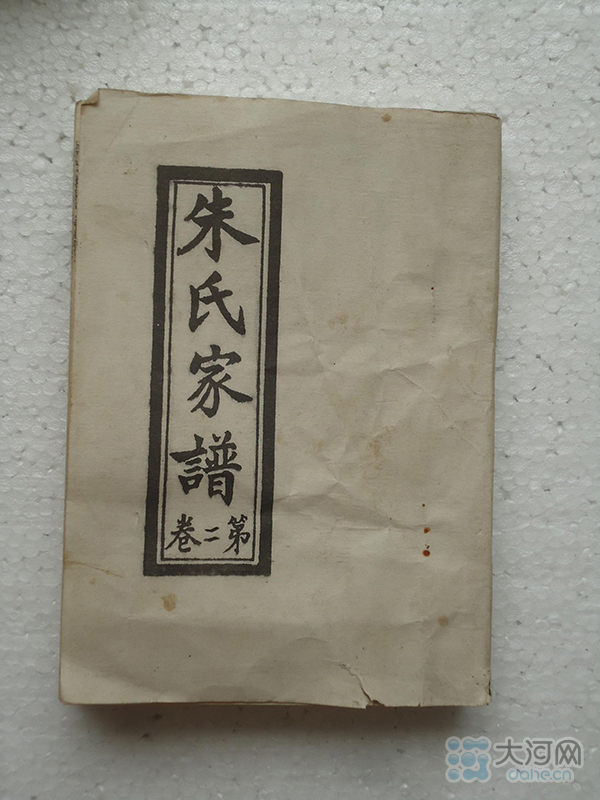 朱氏家譜
第二卷
大河网
dahe.cn